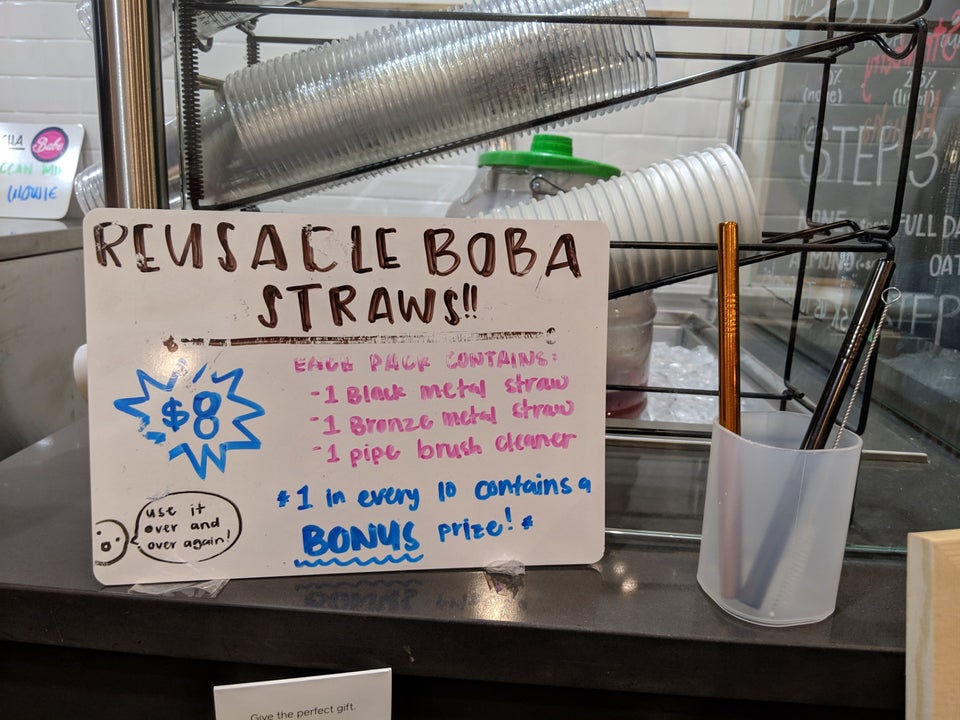 REUSABLE BOBA
STRAWS!!
EACH PACK CONTAINS:
-1 Black metal straw
-1 Bronze metal straw
-1 pipe brush cleaner
$8
*1 in every 10 contains a
BONUS prize!*
use it
over and
over again!
Give the perfect gift.
Babe
STEP 3
FULL DA
OAT
STEP
25%